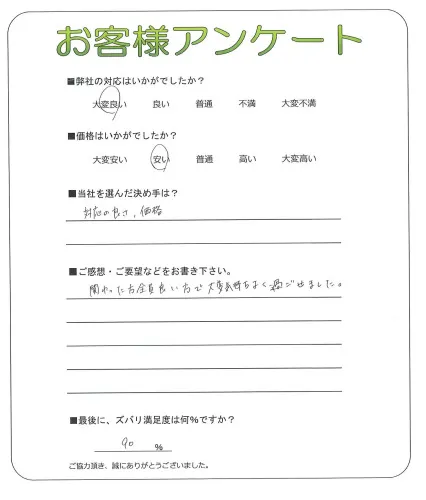 お客様アンケート
■弊社の対応はいかがでしたか？
大変良い 良い 普通 不満 大変不満
■価格はいかがでしたか？
大変安い 安い 普通 高い 大変高い
■当社を選んだ決め手は？
対応の良さ、価格
■ご感想・ご要望などをお書き下さい。
関わった方全員良い方で大変気持ちよく過ごせました。
■最後に、ズバリ満足度は何%ですか？
90 %
ご協力頂き、誠にありがとうございました。